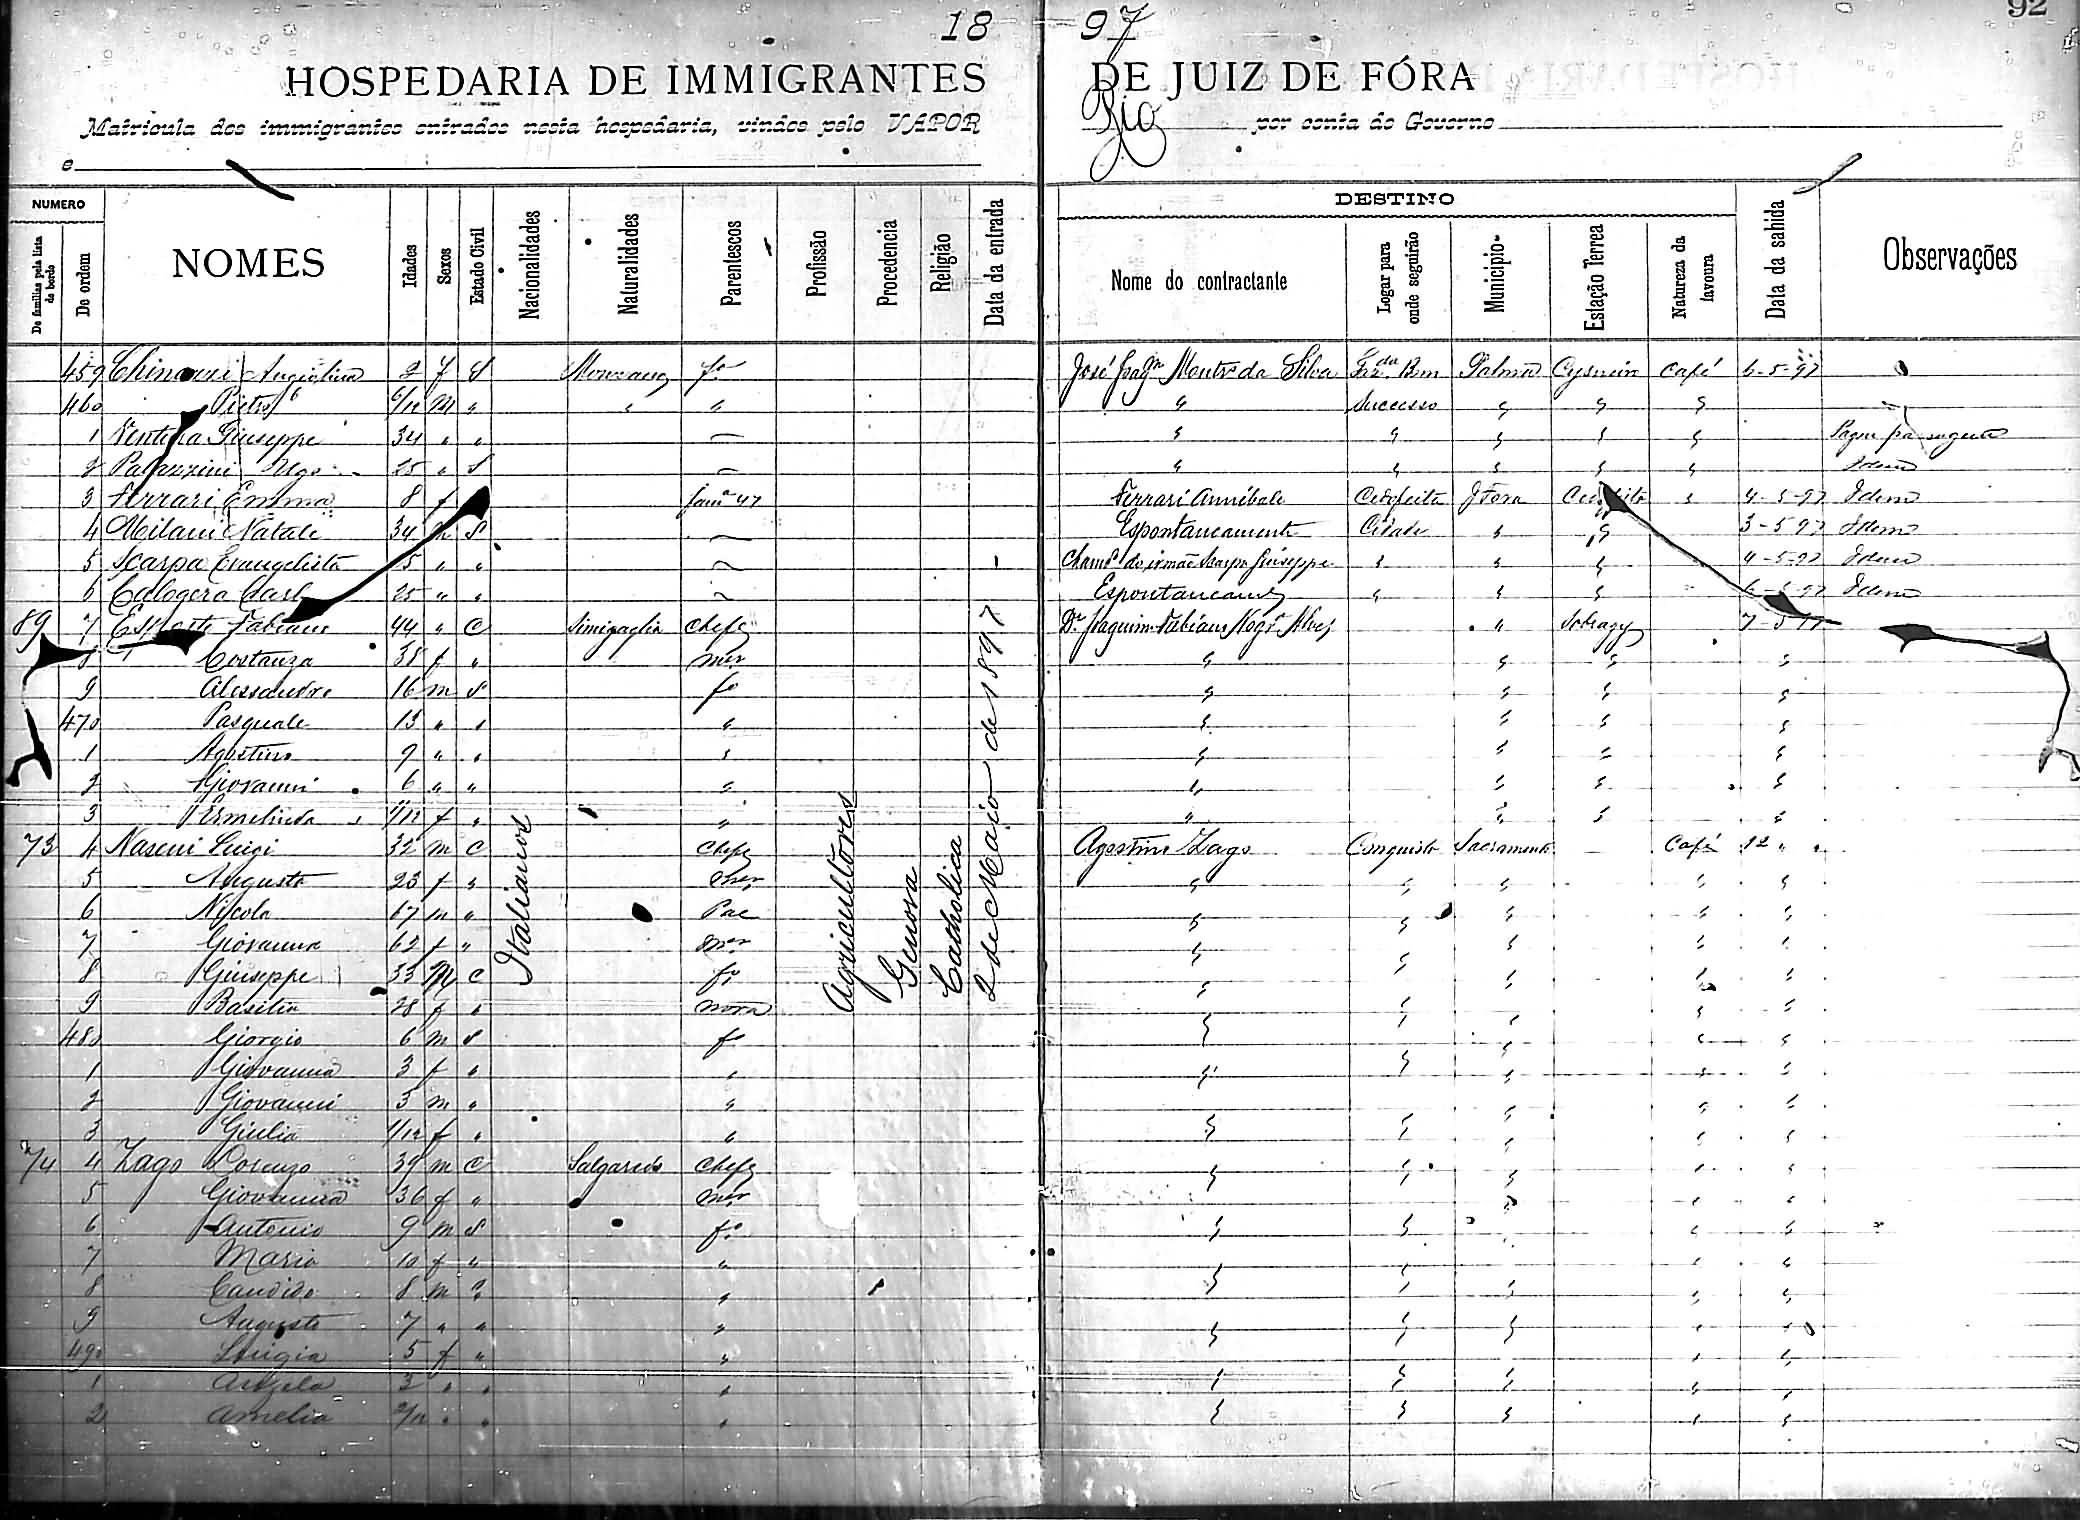 92
18 97
HOSPEDARIA DE IMMIGRANTES DE JUIZ DE FÓRA
Matricula dos immigrantes entrados nesta hospedaria, vindos pelo VAPOR Rio por conta do Governo
e
NUMERO
De familias pela lista de bordo
De ordem
NOMES
Idades
Sexos
Estado Civil
Nacionalidades
Naturalidades
Parentescos
Profissão
Procedencia
Religião
Data da entrada
DESTINO
Nome do contractante
Logar para onde seguirão
Municipio
Estação Terrea
Natureza da lavoura
Data da sahida
Observações
Italianos
Agricultores
Genova
Catholica
2 de Maio de 1897
459 Angiolina 2 f S fª José Joaqm Montrº da Silva Fazda Bom Palma Cysneiro Café 6-5-97
460 Pietro 6/12 M " " " " Successo " " "
1 Ventura Giuseppe 34 " " — " " " " " Pagou passagem
2 Palazzini Ugo 25 " S — " " " " " Idem
3 Ferrari Emma 8 f 47 Ferrari Annibale Cedofeita J Fora " 4-5-97 Idem
4 Milani Natale 34 S — Espontaneamente Cidade " " 3-5-97 Idem
5 Scarpa Evangelista 5 " " — Chamº do irmão Scarpa Giuseppe " " " 4-5-97 Idem
6 Calogera Carlo 25 " " — " " " 6-5-97 Idem
89 7 Fabiano 44 " C Simigaglia Chefe Dr Joaquim Fabiano Nogrª Alvez " Sobragy 7-5-97
8 Costanza 38 f " mer " " " "
9 Alessandro 16 m S fº " " " "
470 Pasquale 13 " " " " " " "
1 Agostino 9 " " " " " " "
2 Giovanni 6 " " " " " " "
3 Ermelinda 11/12 f " " " " " "
73 4 Luigi 32 m C Chefe Agostino Zago Conquista Sacramento — Café 12 " "
5 Augusta 23 f " mer " " " " "
6 Nicola 67 m " Pae " " " " "
7 Giovanna 62 f " mer " " " " "
8 Giuseppe 33 M C fº " " " " "
9 Basilia 28 f " nora " " " " "
480 Giorgio 6 m S fº " " " " "
1 Giovanna 3 f " " " " " " "
2 Giovanni 3 m " " " " "
3 Giulia 1/12 f " " " " " " "
74 4 Zago Lorenzo 39 m C Salgaredo Chefe " " " " "
5 Giovanna 36 f " mer " " "
6 Antonio 9 m S fº " " " "
7 Maria 10 f " " " "
8 Candido 8 m " " " " " " "
9 Augusto 7 " " " " " " " "
490 Luigia 5 f " " " "
1 Angela 3 " " " " " " " "
2 Amelia 2/12 " " " " " " " "